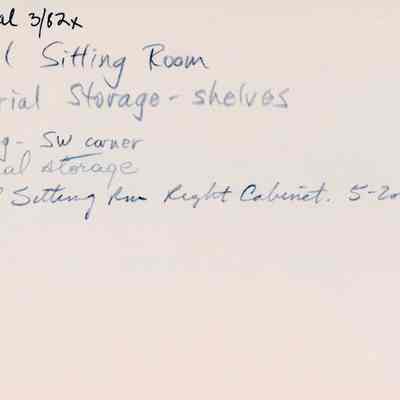 al 3/62x
l Sitting Room
rial Storage - shelves
g - SW corner
al storage
Sitting Rm Right Cabinet. 5-20